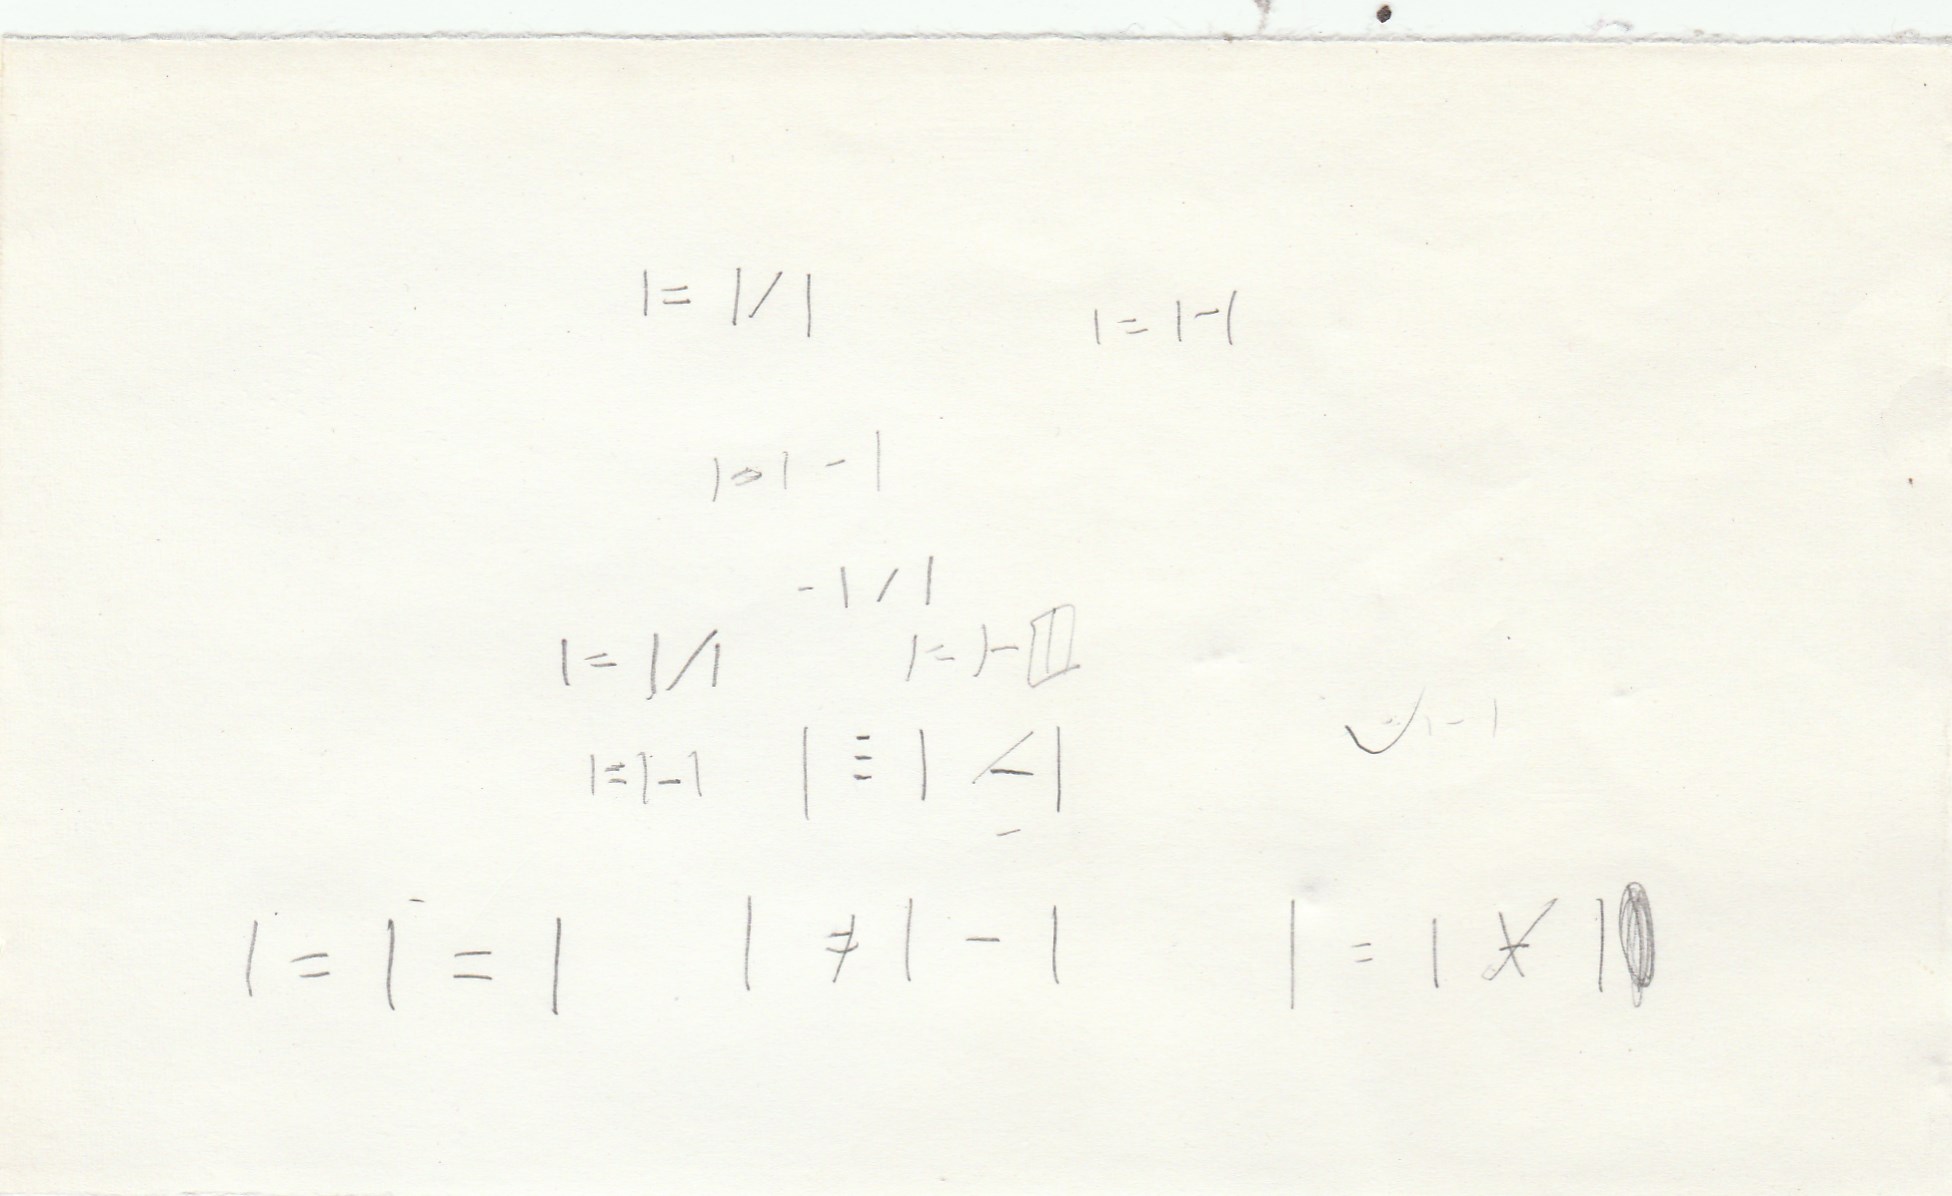 1 = 1 / 1    1 = 1 - 1
1 = 1 - 1
- 1 / 1
1 = 1 / 1    1 = 1 -
1 ≡ 1 - 1    1 ≡ 1 - 1    1 - 1
1 = 1 = 1    1 ≠ 1 - 1    1 = 1 1